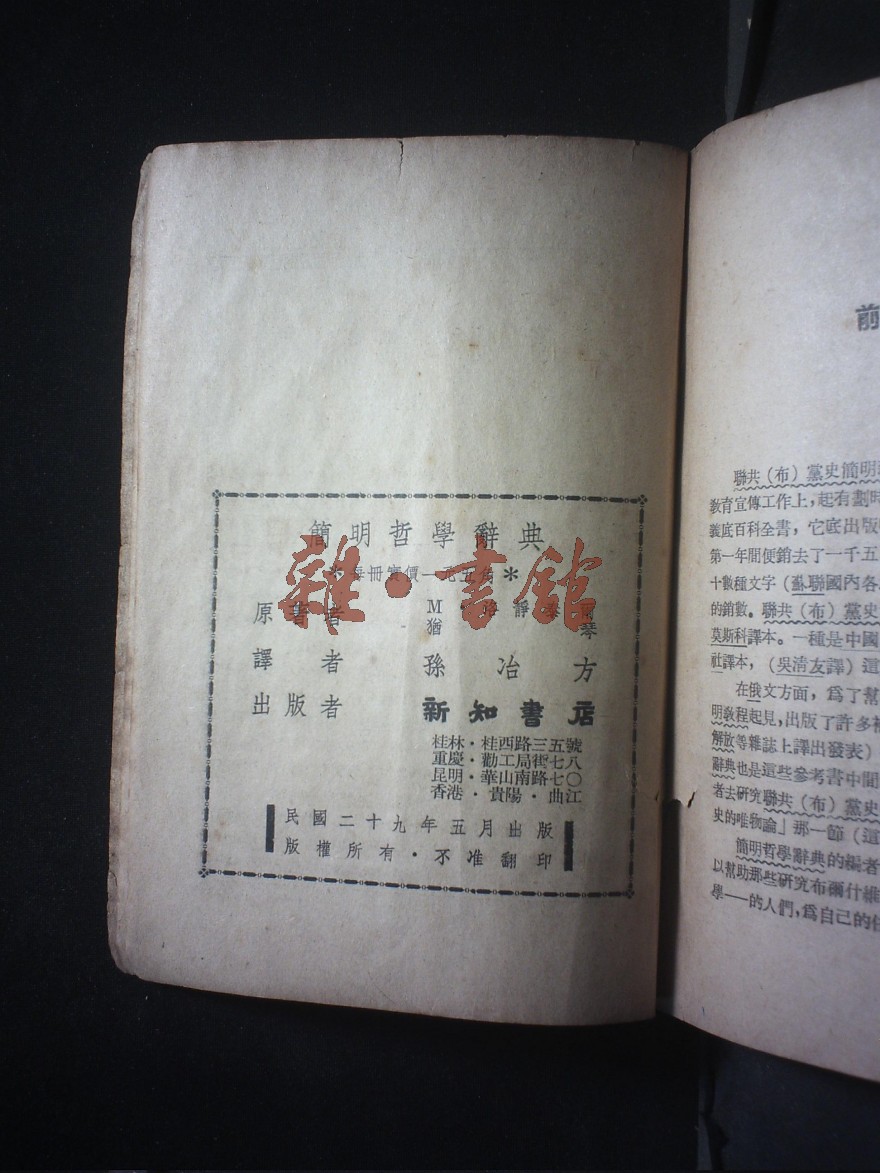 簡明哲學辭典
*每冊實價一元五角*
原著者 M
猶 琴
譯者 孫冶方
出版者 新知書店
桂林·桂西路三五號
重慶·勸工局街七八
昆明·華山南路七〇
香港·貴陽·曲江
民國二十九年五月出版
版權所有·不准翻印
雜·書館
前
聯共（布）黨史簡明
教育宣傳工作上，起有劃時
義底百科全書，它底出版
第一年間便銷去了一千五
十數種文字（蘇聯國內各
的銷數。聯共（布）黨史
莫斯科譯本。一種是中國
社譯本，（吳清友譯）這
在俄文方面，爲了幫
明教程起見，出版了許多補
解放等雜誌上譯出發表）
辭典也是這些參考書中間
者去研究聯共（布）黨史
史的唯物論」那一節（這
簡明哲學辭典的編者
以幫助那些研究布爾什維
學——的人們，爲自己的任